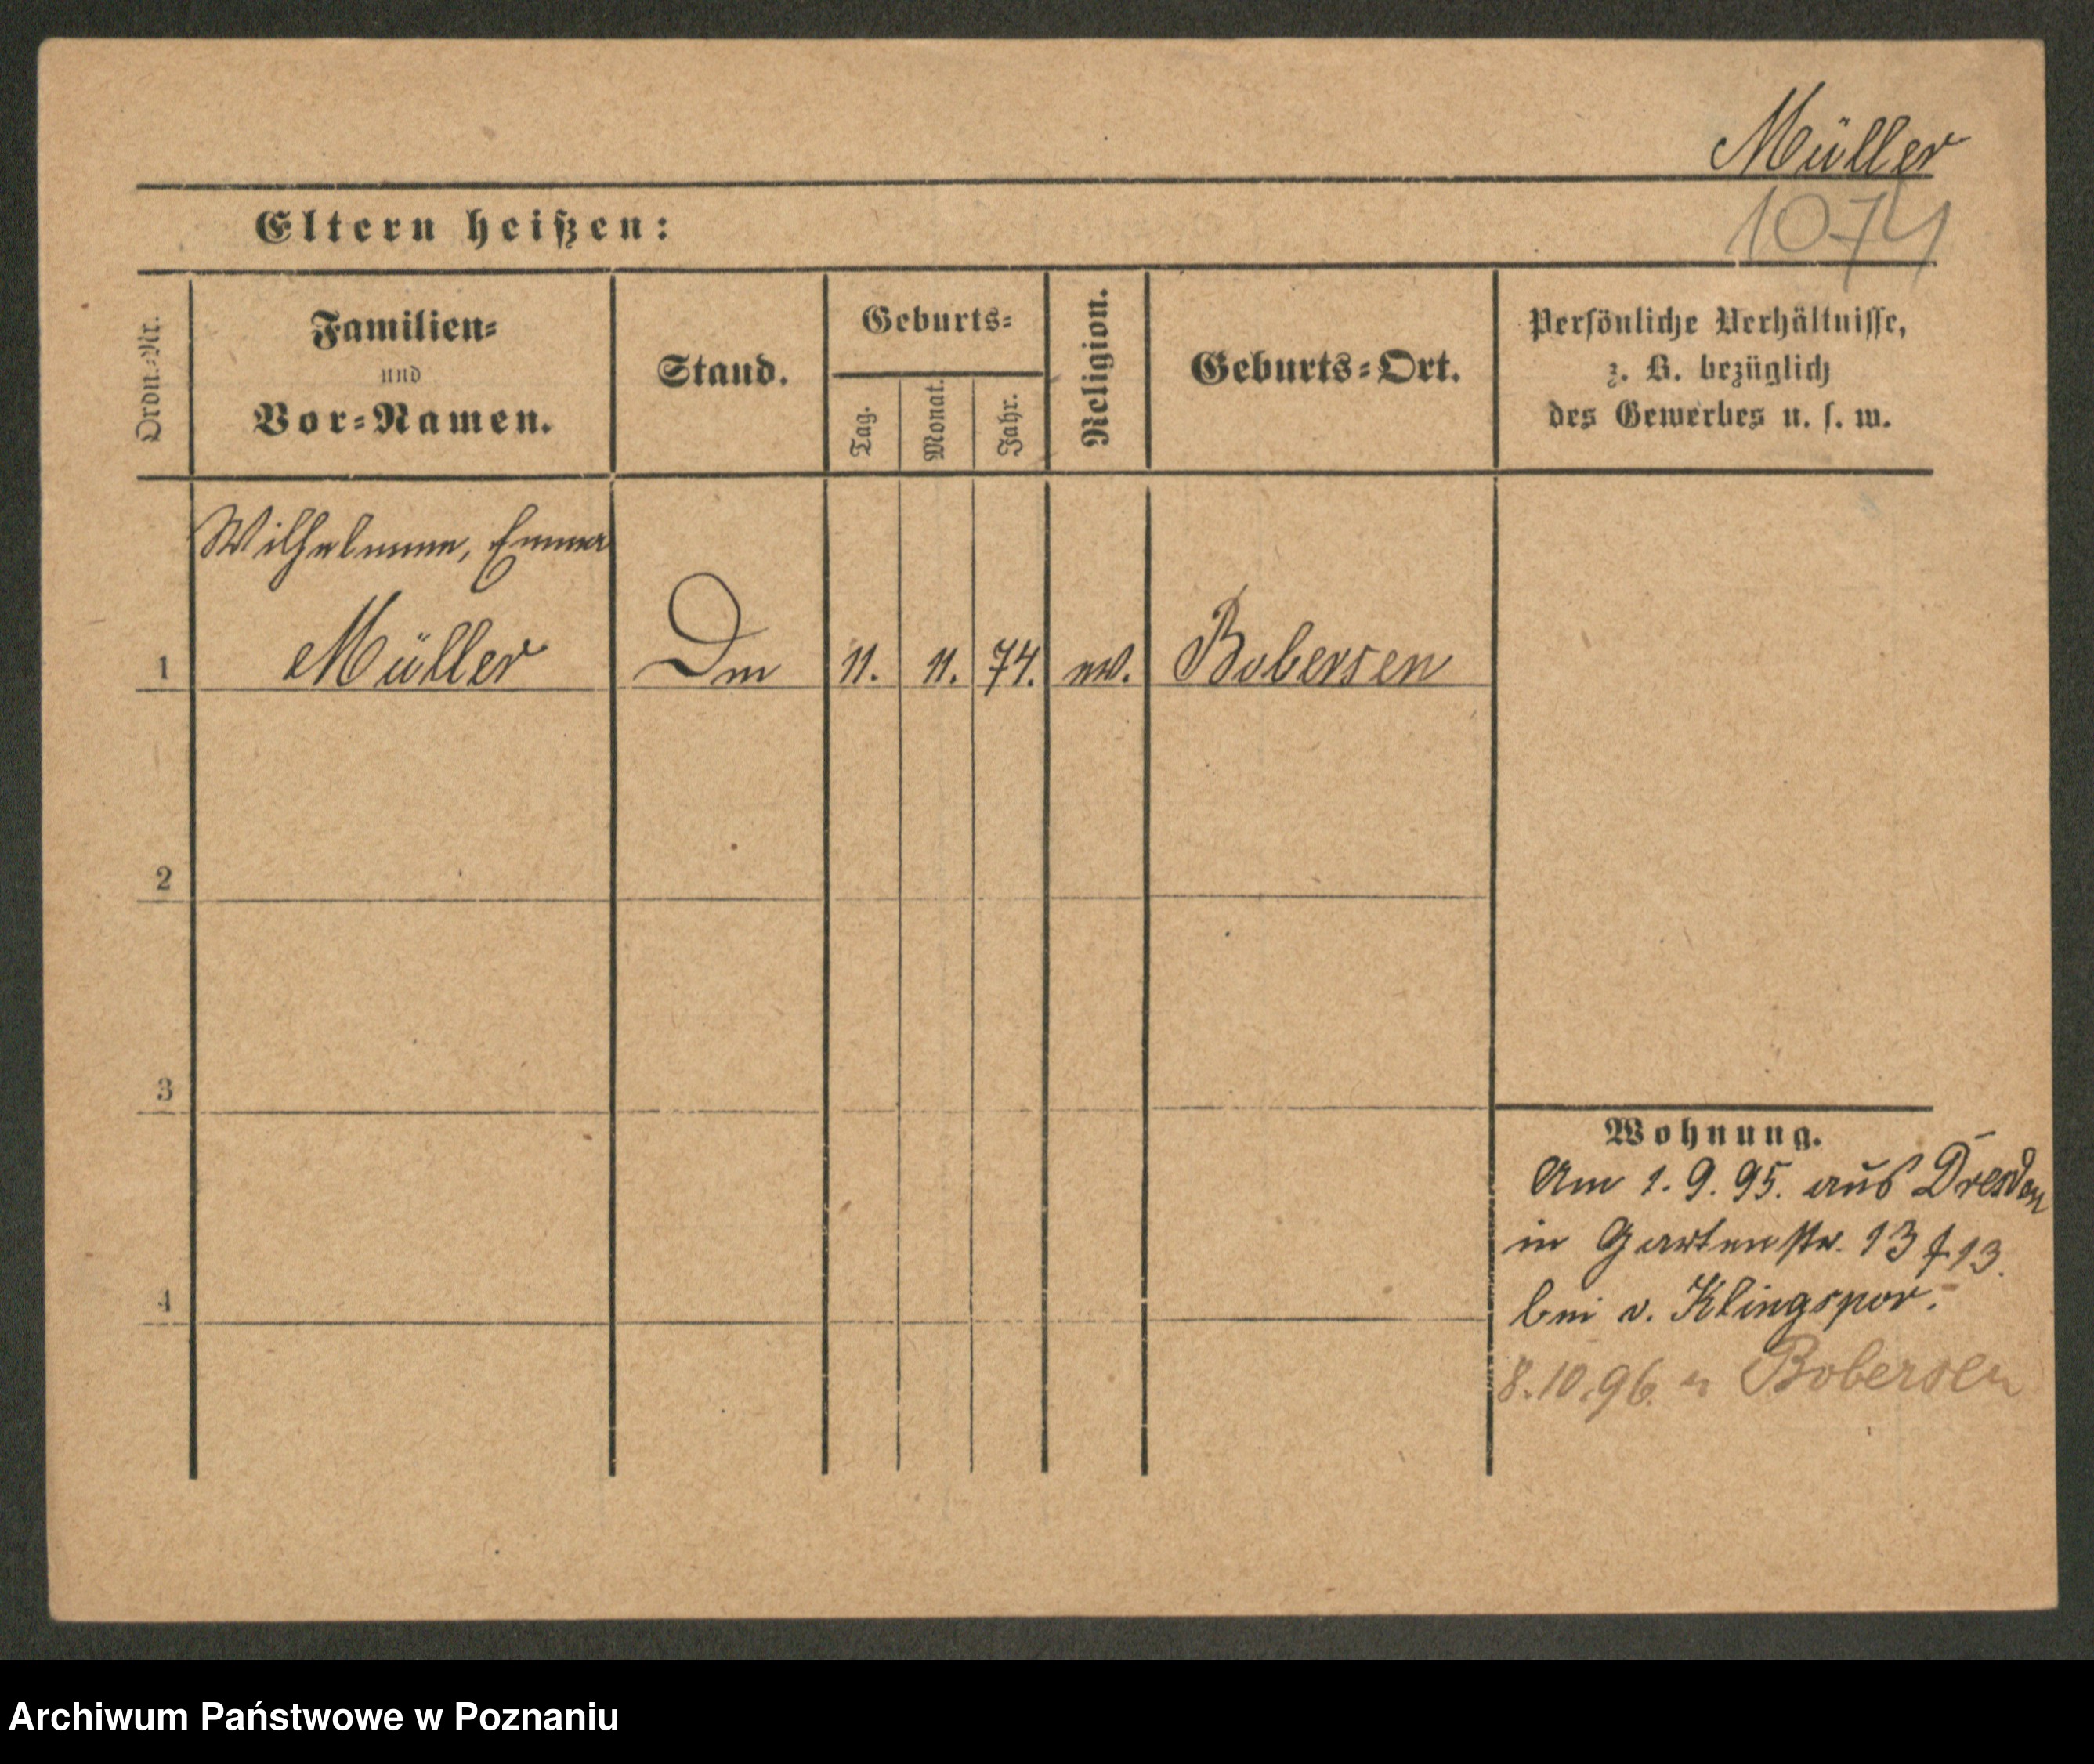 Müller
1074
Eltern heißen:
Ordn.-Nr.
Familien-
und
Vor-Namen.
Stand.
Geburts-
Tag.
Monat.
Jahr.
Religion.
Geburts-Ort.
Persönliche Verhältnisse,
z. B. bezüglich
des Gewerbes u. s. w.
Emma
1 Müller 11. 11. 74. ev. Bobersen
2
3
4
Wohnung.
Am 1. 9. 95. aus Dresden
in Gartenstr. 13
bei v. Klingspor.
8.10.96. n Bobersen
Archiwum Państwowe w Poznaniu